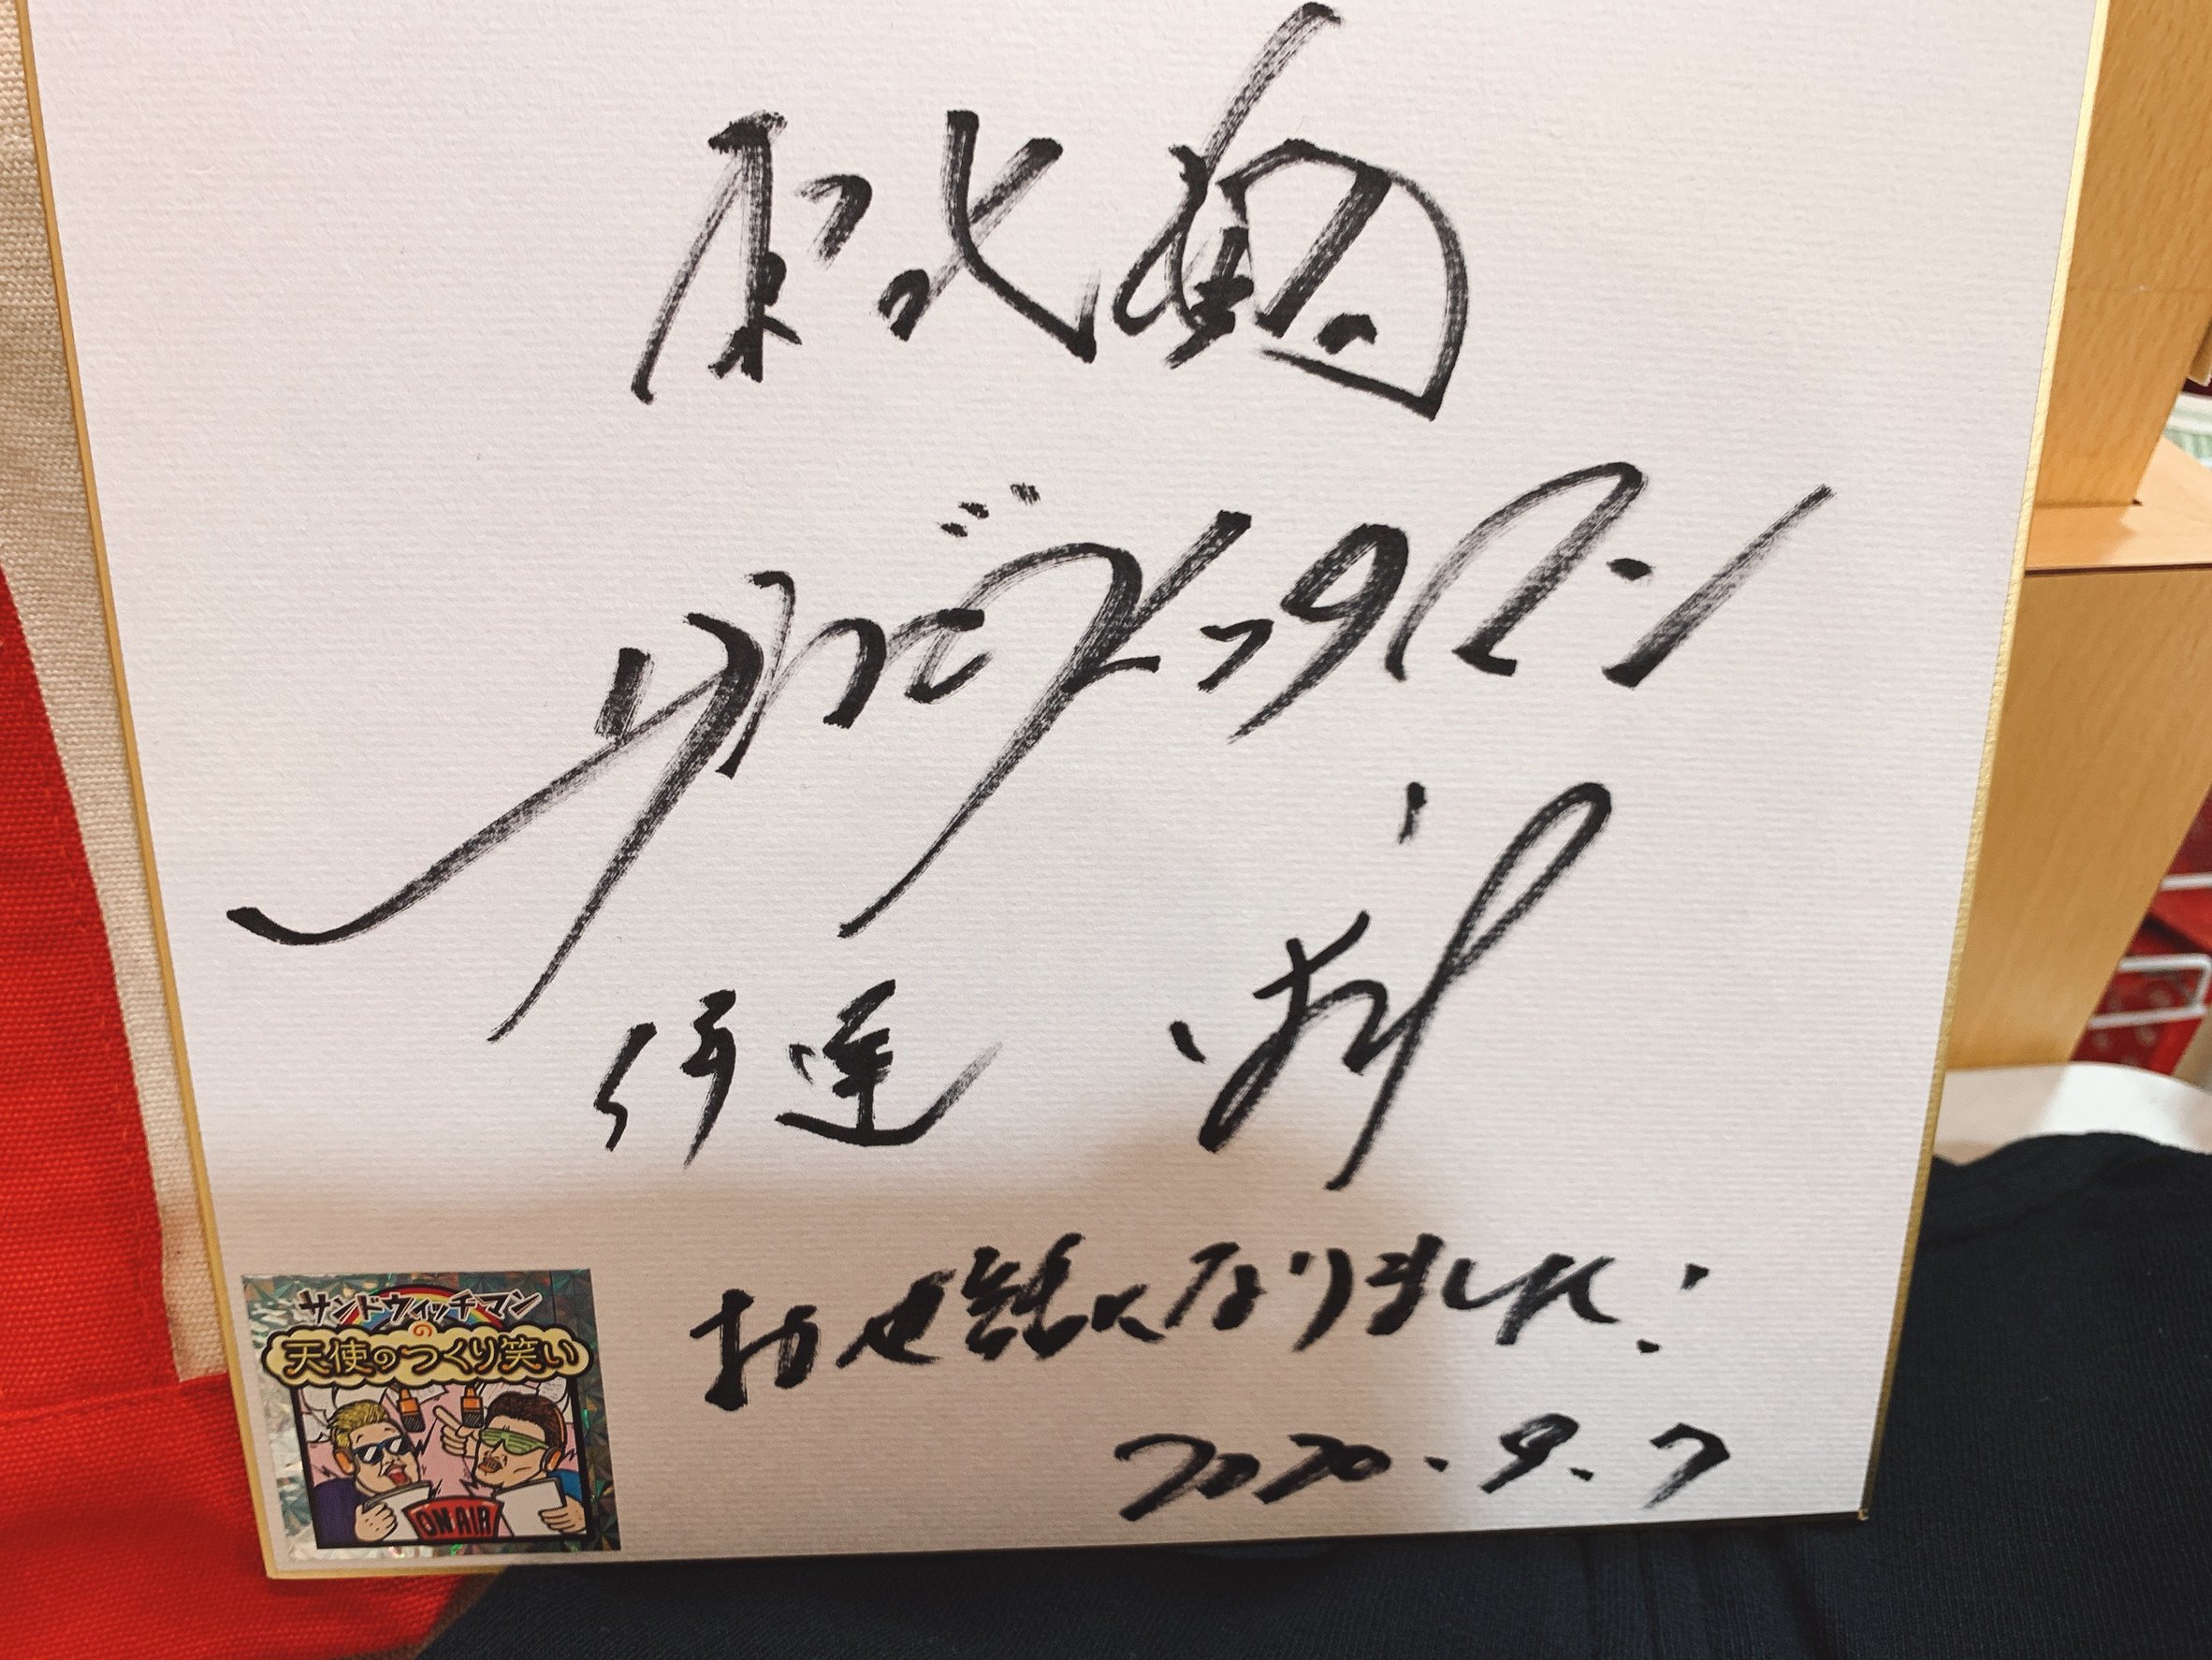 サンドウィッチマン
伊達
お世話になりました!
2020.9.7
サンドウィッチマン
の
天使のつくり笑い
ON AIR